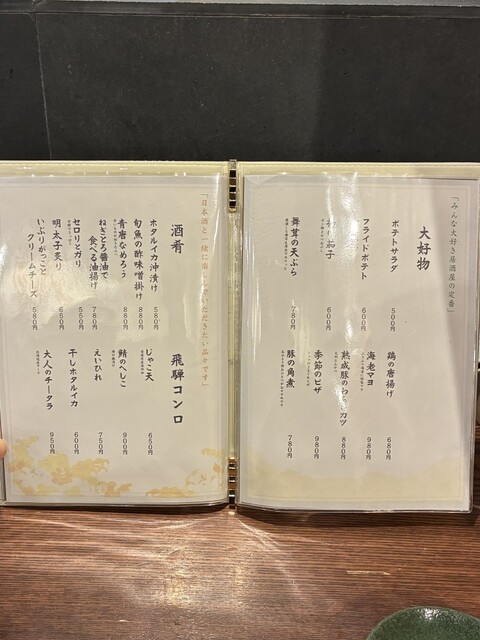 「みんな大好き居酒屋の定番」
大好物
ポテトサラダ
500円
フライドポテト
600円
茄子
600円
舞茸の天ぷら
780円
鶏の唐揚げ
680円
海老マヨ
980円
熟成豚の
カツ
880円
季節のピザ
980円
豚の角煮
780円
「日本酒と一緒に楽しんでいただきたい品々です」
酒肴
ホタルイカ沖漬け
580円
旬魚の酢味噌掛け
880円
青唐なめろう
880円
ねぎとろ醤油で
食べる油揚げ
780円
セロリとガリ
550円
明太子炙り
650円
いぶりがっこと
クリームチーズ
580円
飛騨コンロ
じゃこ天
650円
鯖のへしこ
900円
えいひれ
750円
干しホタルイカ
600円
大人のチータラ
950円